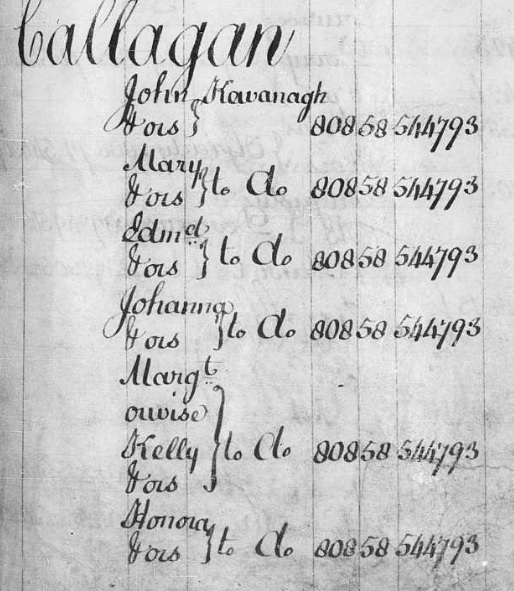 Callagan
John Kavanagh
& ors } 808 58 544793
Mary
& ors } to Do 808 58 544793
Edmd
& ors } to Do 808 58 544793
Johanna
& ors } to Do 808 58 544793
Margt
orwise
Kelly } to Do 808 58 544793
& ors
Honora
& ors } to Do 808 58 544793